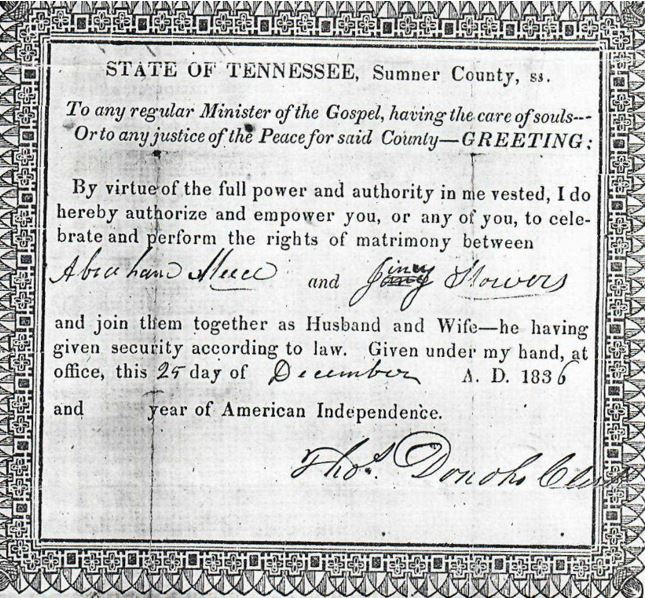 STATE OF TENNESSEE, Sumner County, ss.
To any regular Minister of the Gospel, having the care of souls---
Or to any justice of the Peace for said County—GREETING:
By virtue of the full power and authority in me vested, I do
hereby authorize and empower you, or any of you, to cele-
brate and perform the rights of matrimony between
Abraham and Jincy Stowers
and join them together as Husband and Wife—he having
given security according to law. Given under my hand, at
office, this 25 day of December A. D. 1836
and year of American Independence.
Thos. Donoho Clerk